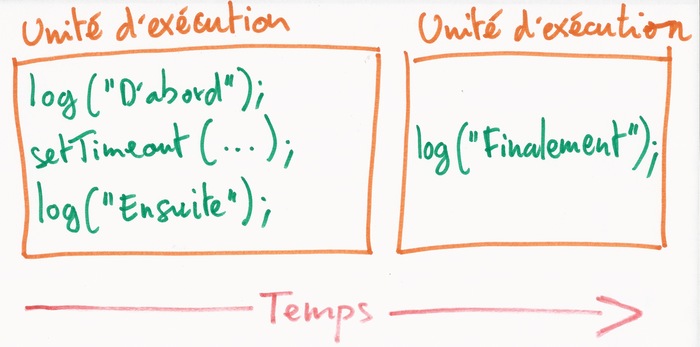 Unité d'exécution
log("D'abord");
setTimeout(...);
log("Ensuite");
Unité d'exécution
log("Finalement");
Temps